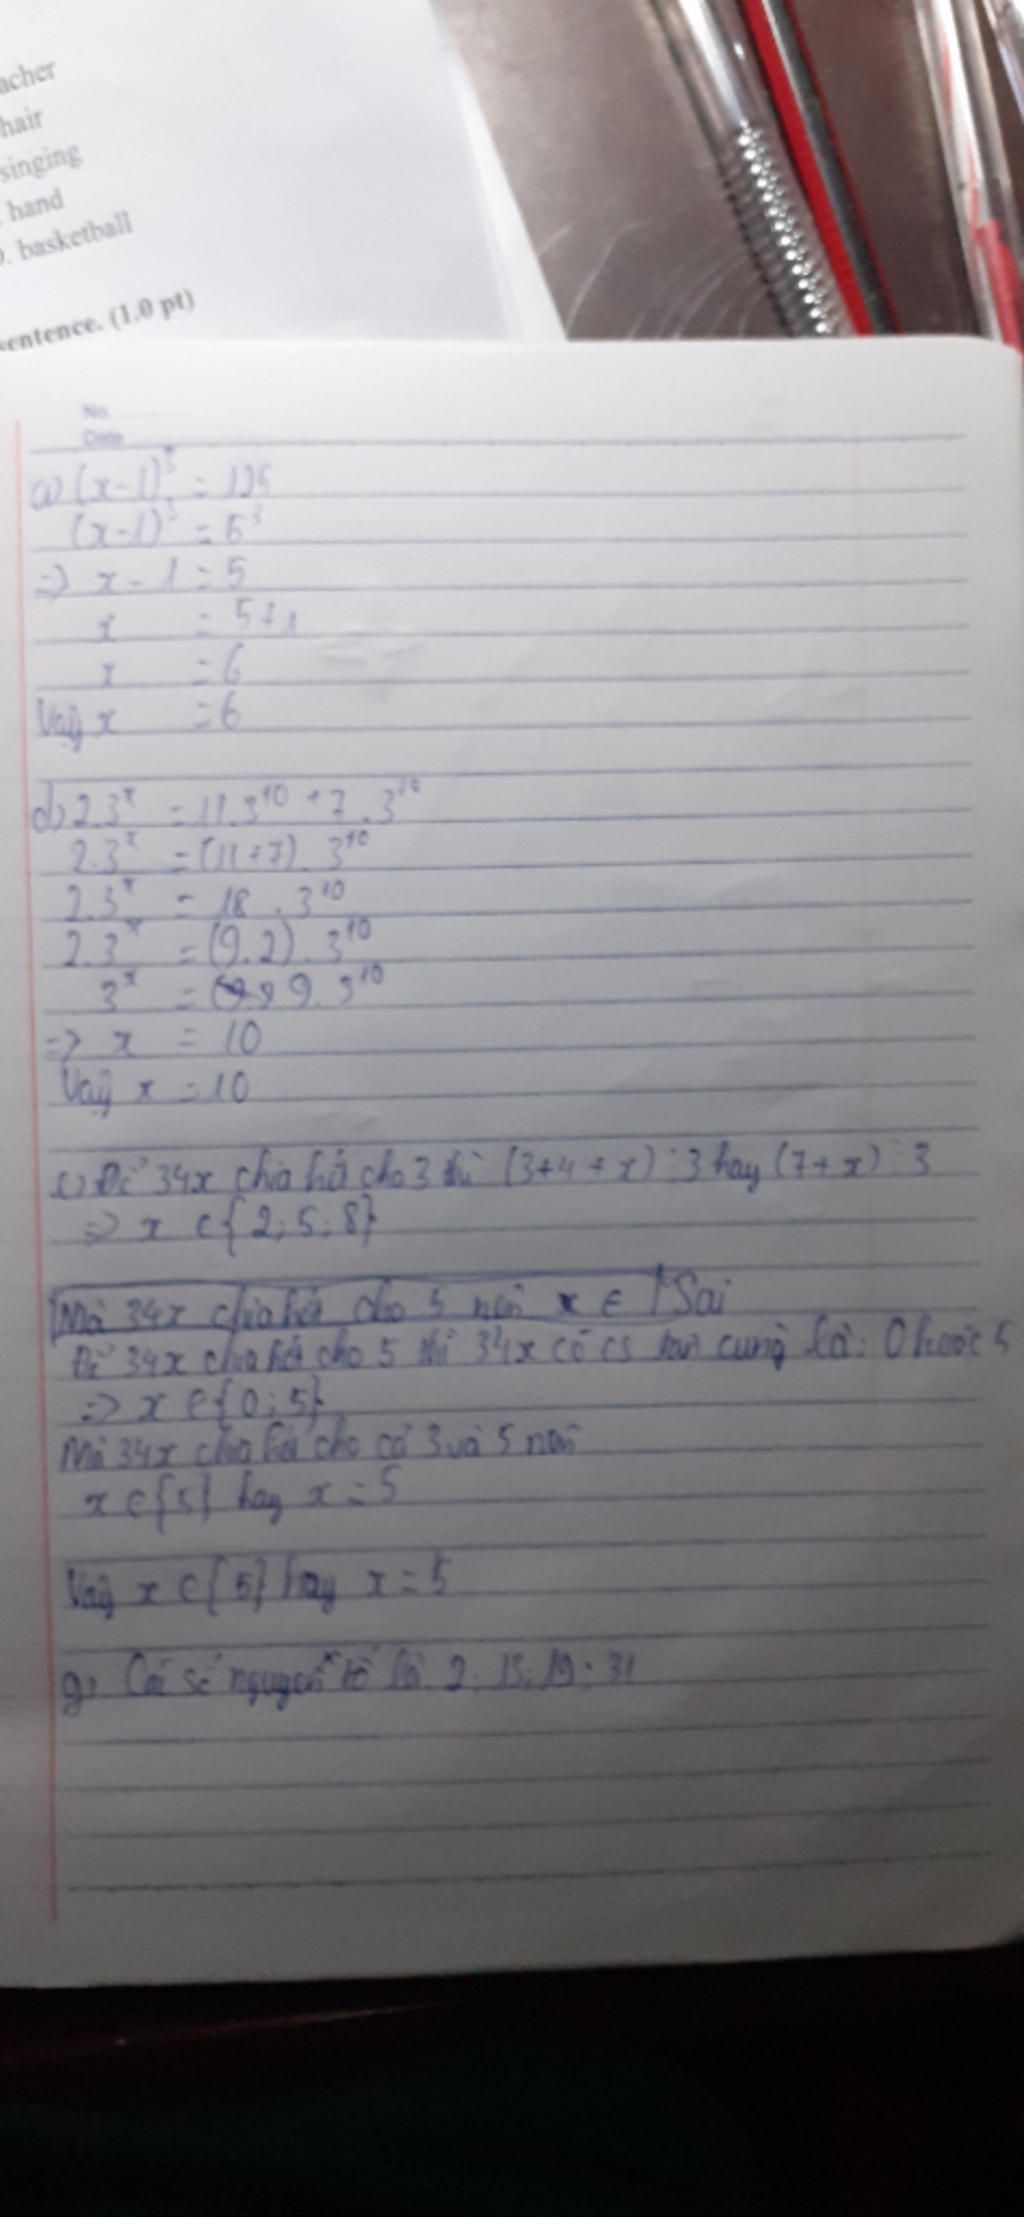 acher
hair
singing
. hand
. basketball
sentence. (1.0 pt)
No.
Date
a) (x-1)³ = 125
(x-1)³ = 5³
=> x - 1 = 5
x = 5+1
x = 6
Vậy x = 6
d) 2.3ˣ = 11.3¹⁰ + 7.3¹⁰
2.3ˣ = (11+7).3¹⁰
2.3ˣ = 18.3¹⁰
2.3ˣ = (9.2).3¹⁰
3ˣ = 9.3¹⁰
=> x = 10
Vậy x = 10
Để 34x chia hết cho 3 thì (3+4+x)⋮3 hay (7+x)⋮3
=> x ∈ {2;5;8}
Mà 34x chia hết cho 5 nên x ∈ Sai
Để 34x chia hết cho 5 thì 34x có cs tận cùng là: 0 hoặc 5
=> x ∈ {0;5}
Mà 34x chia hết cho cả 3 và 5 nên
x ∈ {5} hay x = 5
Vậy x ∈ {5} hay x = 5
g) Các số nguyên tố là 2; 19; 31